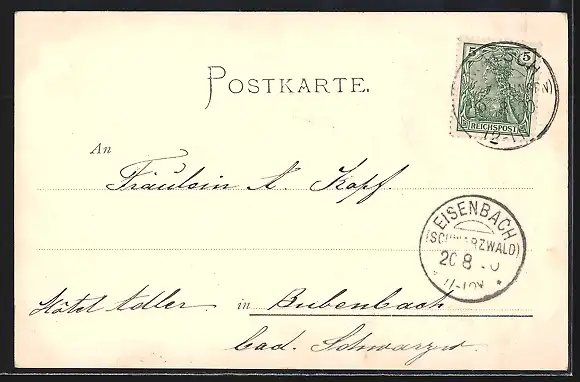 5 5
REICHSPOST
POSTKARTE.
An
Fräulein A. Kopf.
EISENBACH
(SCHWARZWALD)
20 8 0
Hôtel Adler. in Bubenbach
bad. Schwarzw.